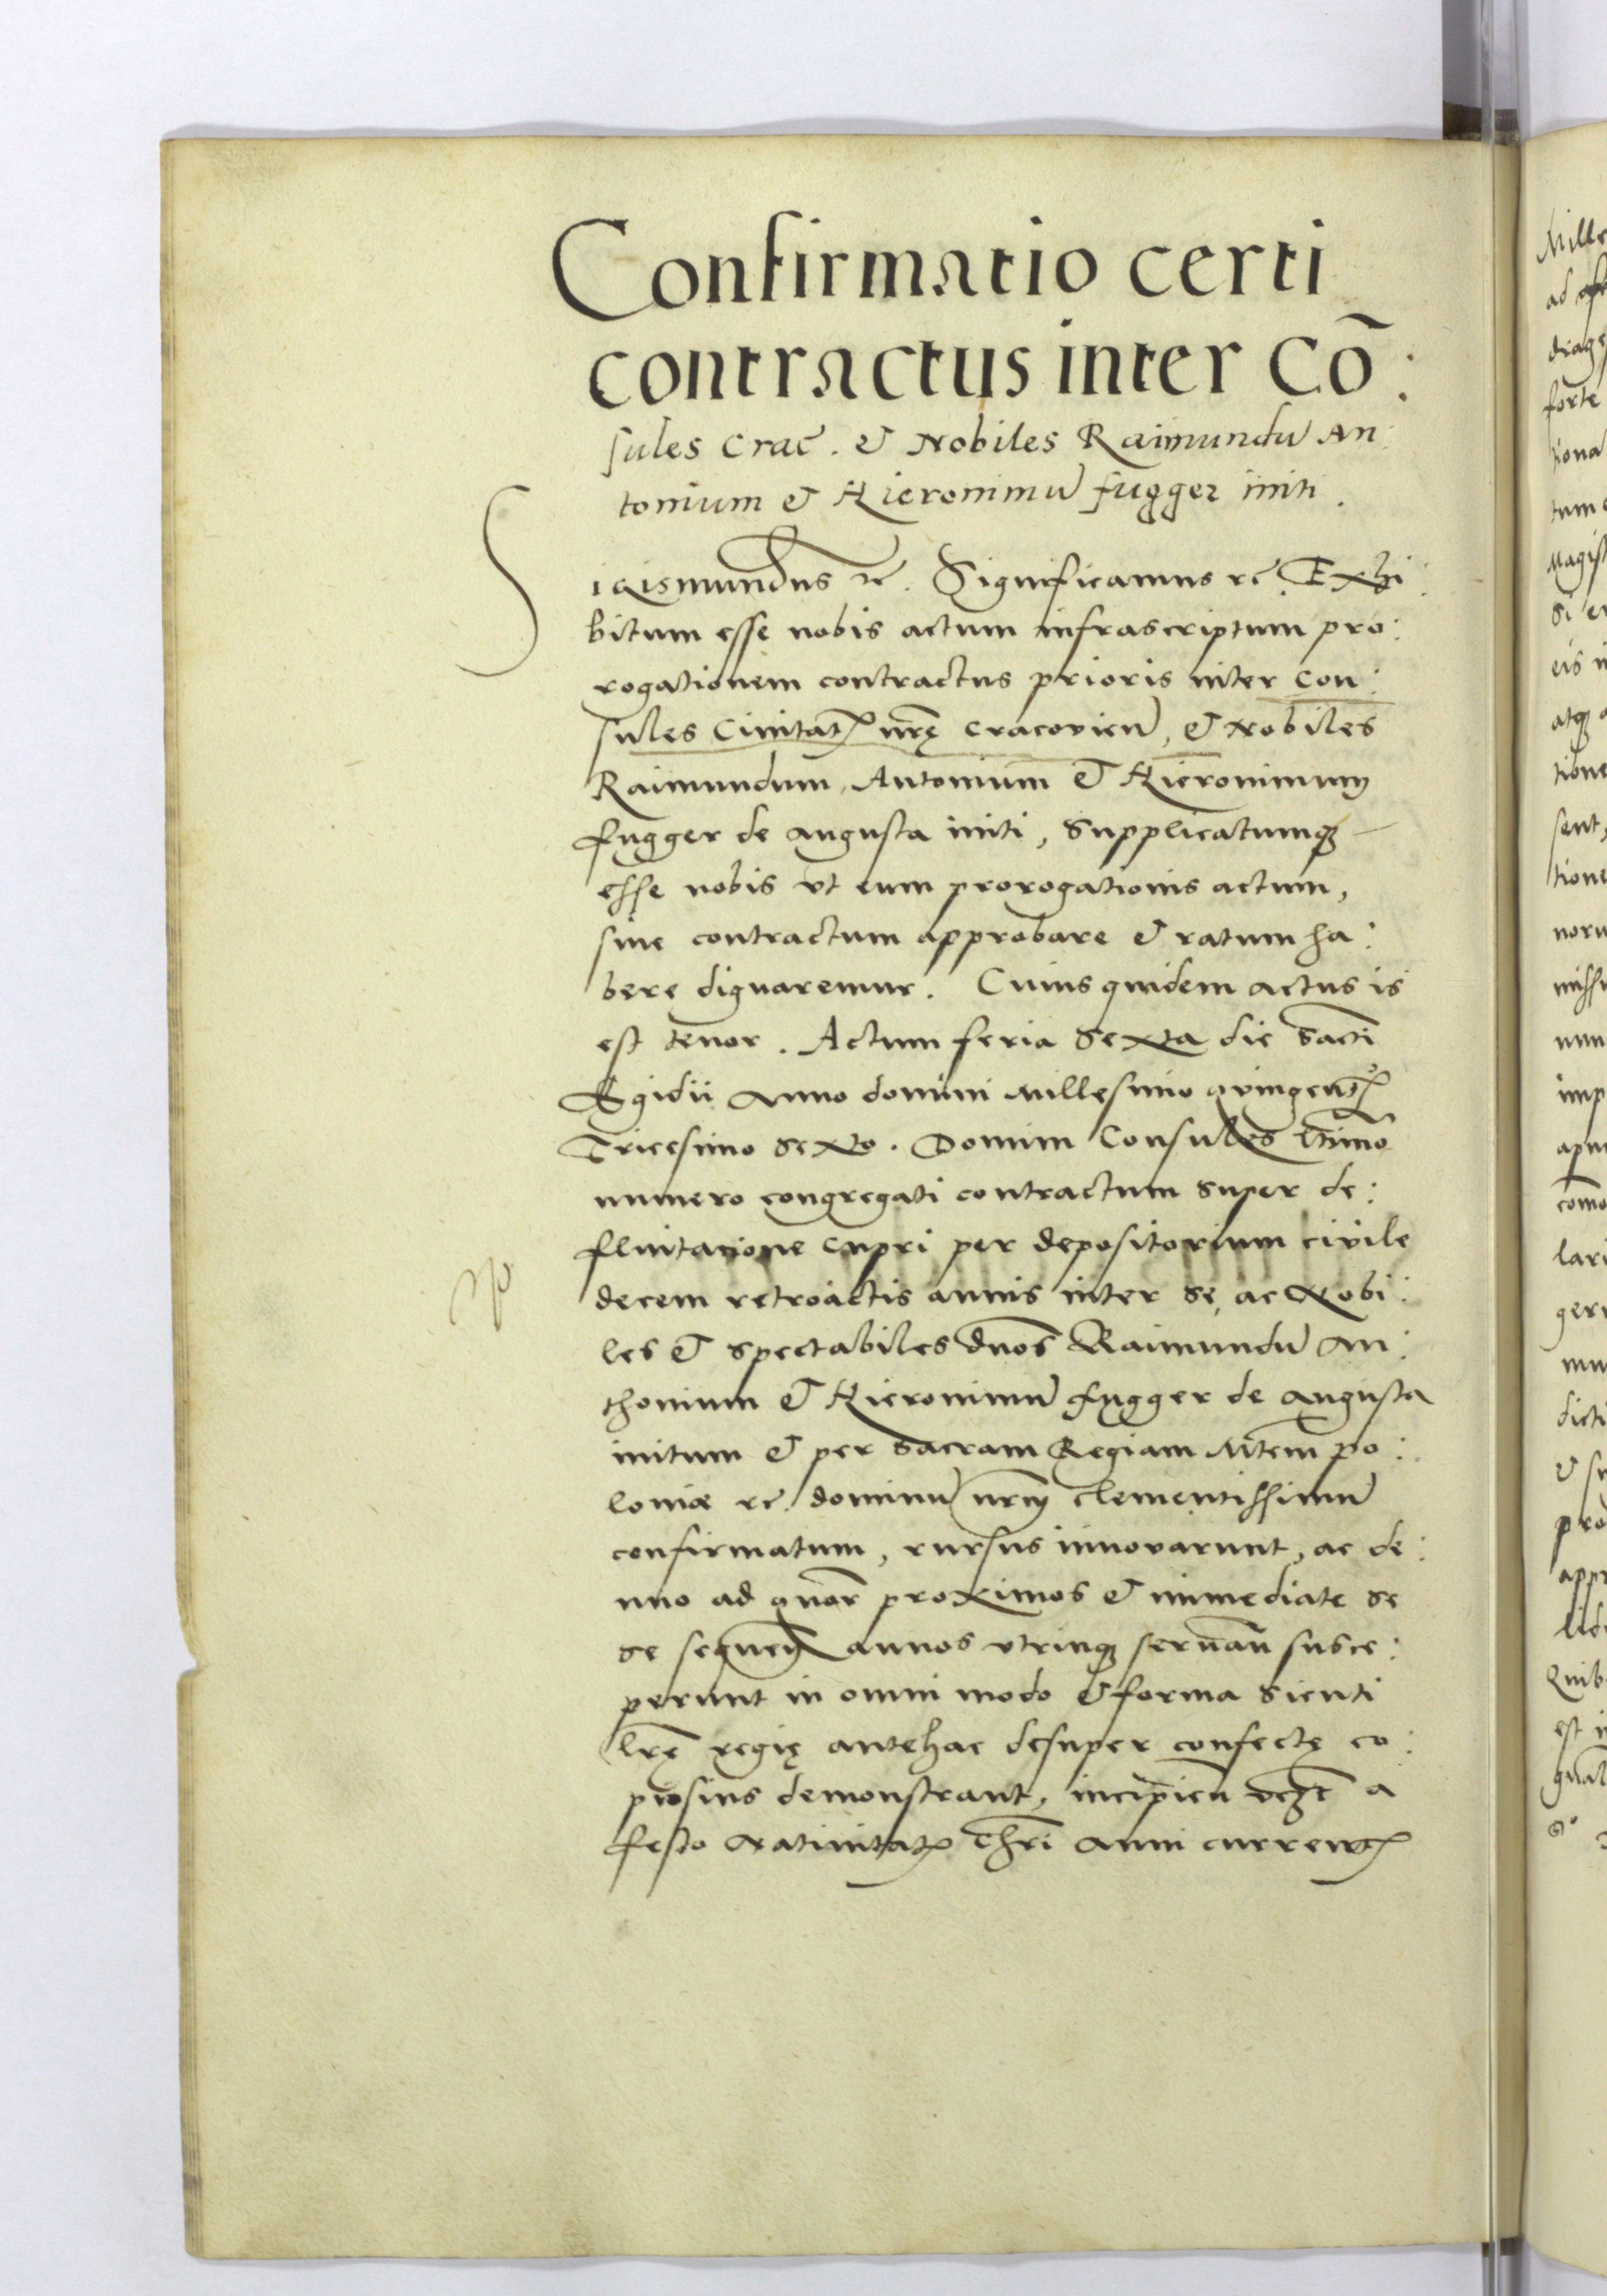 Confirmatio certi
contractus inter Cō:
sules Crac̄. & Nobiles Raimundū An:
tonium & Hieronimū fugger initi.
Sigismundus rc̄. Significamus rc̄. Exhi:
bitum esse nobis actum infrascriptum pro:
rogationem contractus prioris inter Con:
sules Ciuitatꝭ nr̄ę Cracouien̄, & Nobiles
Raimundum, Antonium & Hieronimum
fugger de augusta initi, supplicatumqꝫ
esse nobis vt eum prorogationis actum,
siue contractum approbare & ratum ha:
bere dignaremur. Cuius quidem actus is
est tenor. Actum feria sexta die sacti
Egidii Anno domini Millesimo quingentꝭ
Tricesimo sexto. Domini Consules
numero congregati contractum super de:
fluitatione cupri per depositorium ciuile
decem retroactis annis inter se, ac Nobi:
les & spectabiles dnōs Raimundū An:
thonium & Hieronimū fugger de augusta
initum & per sacram Regiam Mtēm po:
loniæ rc̄. dominū nrm̄ clementissimū
confirmatum, rursus innouarunt, ac de:
nuo ad quor̄ proximos & immediate se
se sequen̄ annos vtrinqꝫ seruan̄ susce:
perunt in omni modo & forma sicuti
lr̄ę regię antehac desuper confectę co:
piosius demonstrant, incipien̄ vcz̄ a
festo Natiuitatꝭ Chri̅ anni currentꝭ
Mille
ad
drage
forte
tiona
tum
Magist
si
eis
atqꝫ
tione
sent,
tione
noru
missu
num
imp
como
lari
geri
mu
dicti
& su
pro
app
lid
Quib
est